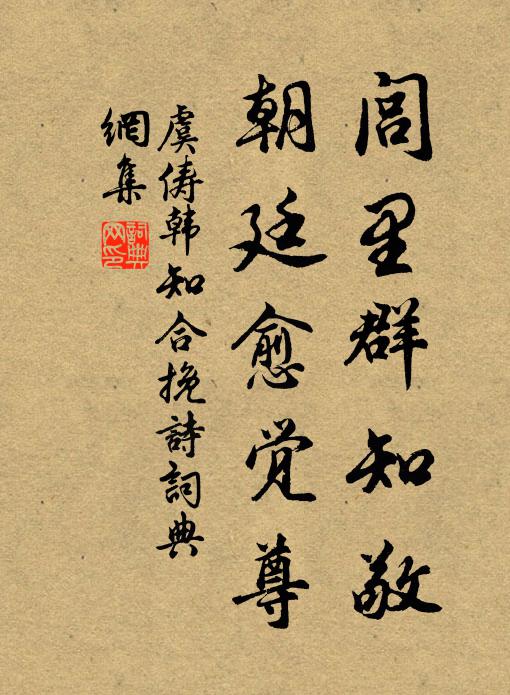 閭里群知敬
朝廷愈觉尊
虞俦韩知合挽詩詞典
網集
詞典
网印